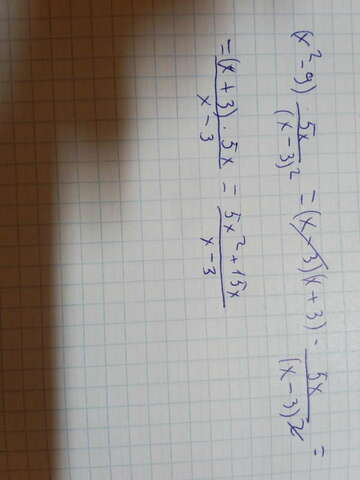 (x²-9) · 5x/(x-3)² = (x-3)(x+3) · 5x/(x-3)² =
= (x+3) · 5x/x-3 = 5x²+15x/x-3